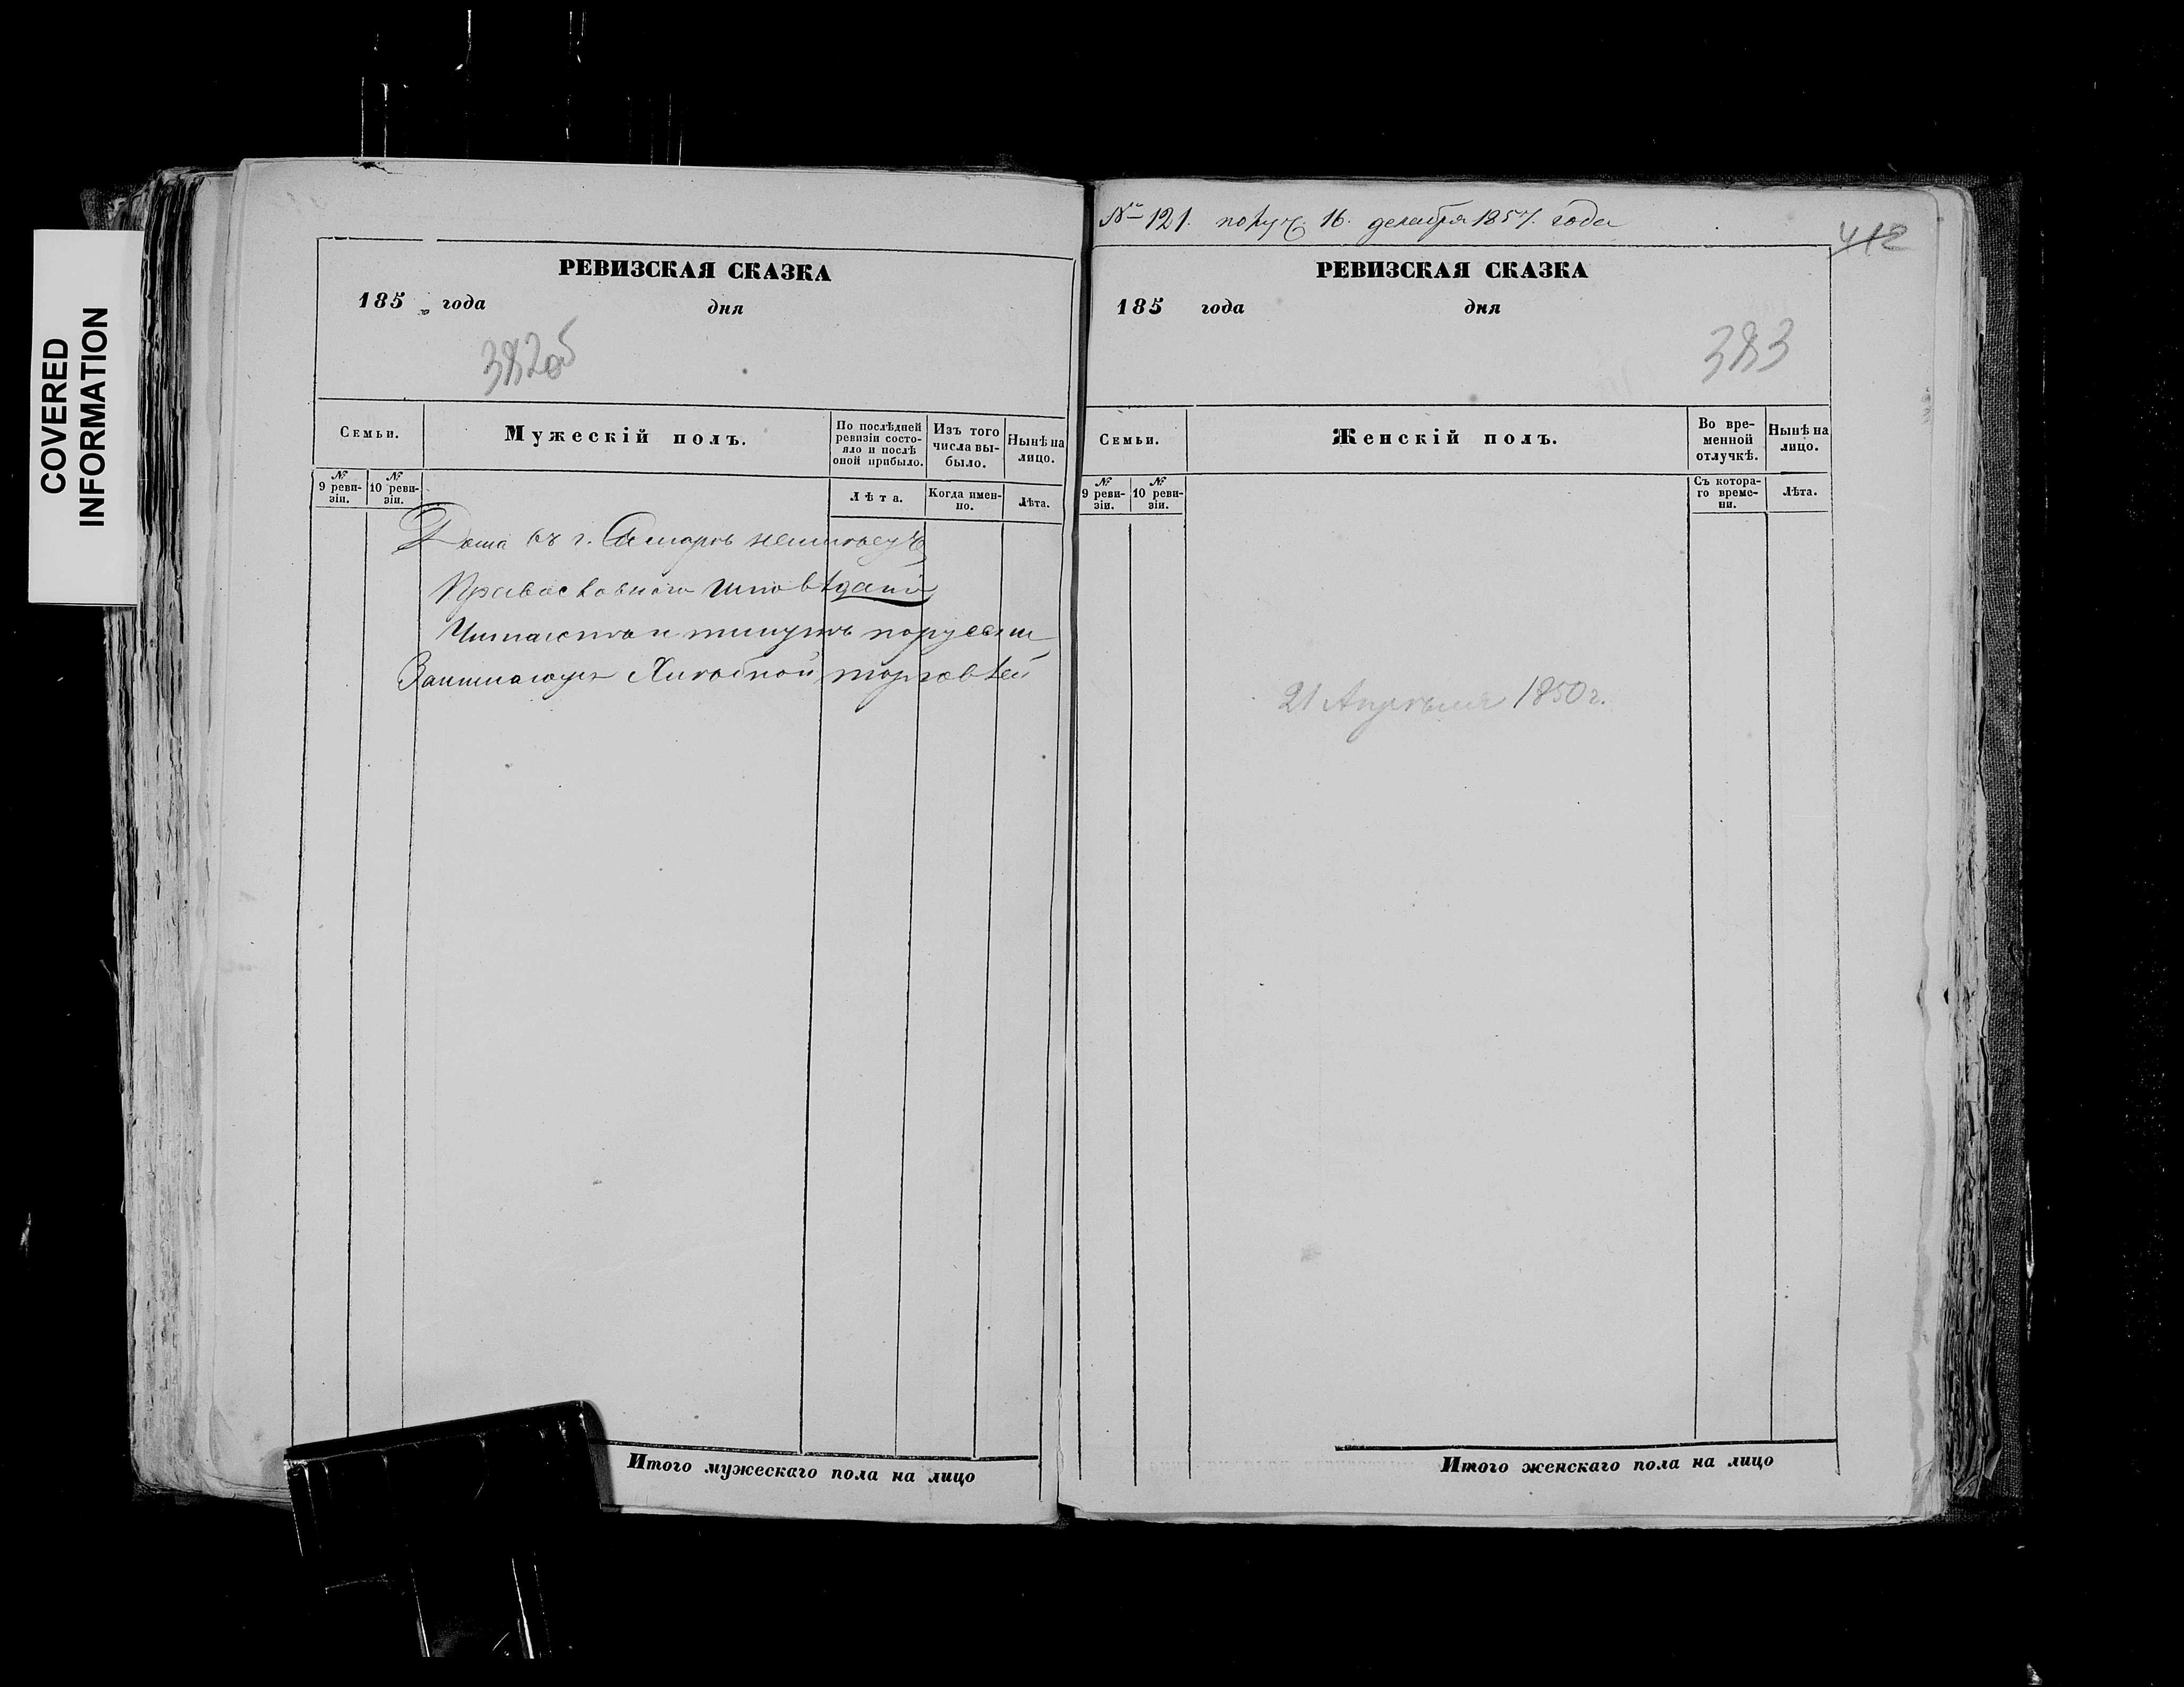 COVERED
INFORMATION
РЕВИЗСКАЯ СКАЗКА
185 года дня
382об
Семьи.
Мужескій полъ.
По послѣдней ревизіи состояло и послѣ оной прибыло.
Изъ того числа выбыло.
Нынѣ на лицо.
№ 9 ревизіи.
№ 10 ревизіи.
Лѣта.
Когда именно.
Лѣта.
Дома въ г. Самарѣ неимѣетъ
Православнаго исповѣданія
Читаютъ и пишутъ порусски
Занимаются Хлѣбной торговлей
Итого мужескаго пола на лицо
№ 121. получ. 16. декабря 1857. года
412
РЕВИЗСКАЯ СКАЗКА
185 года дня
383
Семьи.
Женскій полъ.
Во временной отлучкѣ.
Нынѣ на лицо.
№ 9 ревизіи.
№ 10 ревизіи.
Съ котораго времени.
Лѣта.
21 Апрѣля 1850 г.
Итого женскаго пола на лицо